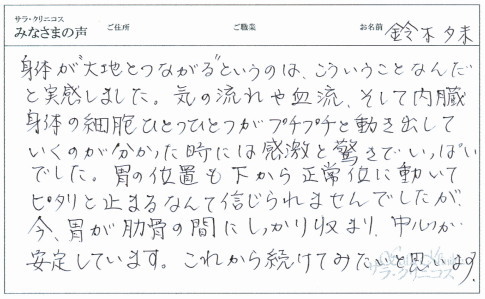 サラ・クリニコス
みなさまの声 ご住所 ご職業 お名前 鈴木 夕来
身体が"大地とつながる"というのは、こういうことなんだ
と実感しました。気の流れや血流、そして内臓
身体の細胞ひとつひとつがプチプチと動き出して
いくのが分かった時には感激と驚きでいっぱい
でした。胃の位置も下から正常位に動いて
ピタリと止まるなんて信じられませんでしたが、
今、胃が肋骨の間にしっかり収まり、中心が
安定しています。これから続けてみたいと思います。
サラ・クリニコス